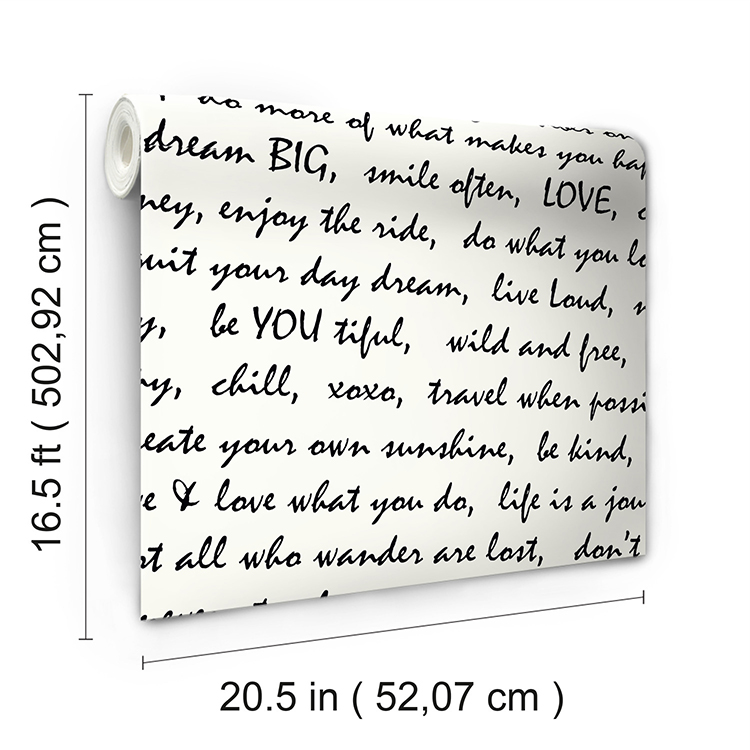 do more of what makes you hap
dream BIG, smile often, LOVE,
ney, enjoy the ride, do what you lo
uit your day dream, live Loud,
y, be YOU tiful, wild and free,
y, chill, xoxo, travel when possi
eate your own sunshine, be kind,
e & love what you do, life is a jou
t all who wander are lost, don't
16.5 ft ( 502,92 cm )
20.5 in ( 52,07 cm )